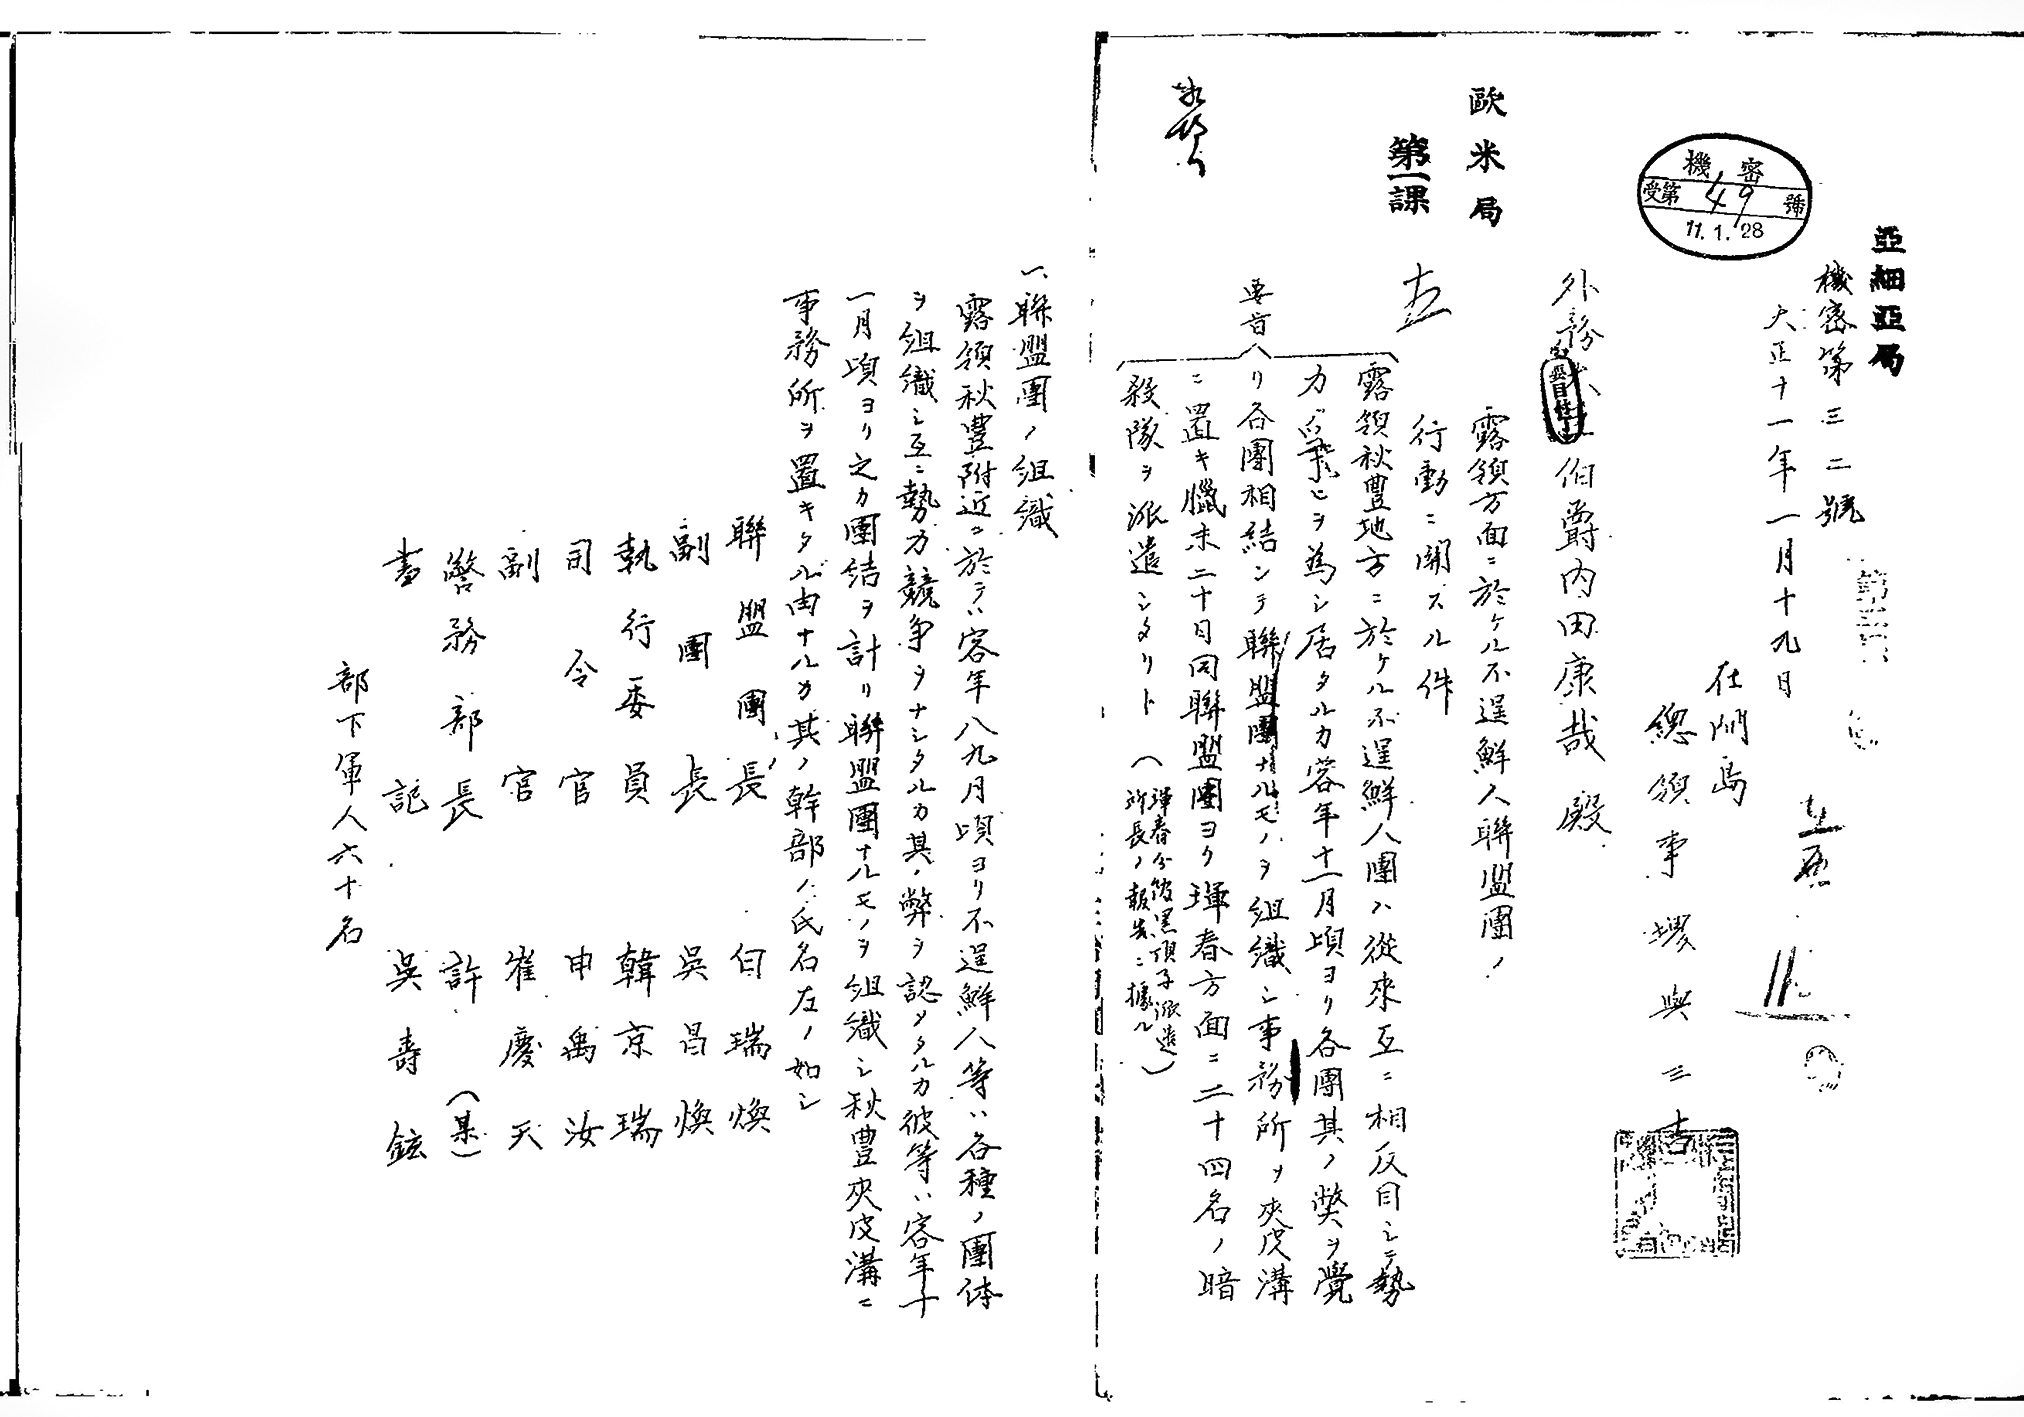 亞細亞局
機密第三二號
大正十一年一月十九日
在間島
總領事堺與三吉
機密
受第49號
11.1.28
外務大臣伯爵内田康哉殿
歐米局
第一課
露領方面ニ於ケル不逞鮮人聯盟團ノ
行動ニ関スル件
要旨
露領秋豊地方ニ於ケル不逞鮮人團ハ從來互ニ相反目シテ勢
力爭ヒヲ為シ居タルカ客年十一月頃ヨリ各團其ノ弊ヲ覺
リ各團相結ンテ聯盟團ナルモノヲ組織シ事務所ヲ夾皮溝
ニ置キ臘末二十日同聯盟團ヨリ琿春方面ニ二十四名ノ暗
殺隊ヲ派遣シタリト
(琿春分館黒頂子派遣
所長ノ報告ニ據ル)
一、聯盟團ノ組織
露領秋豊附近ニ於テハ客年八九月頃ヨリ不逞鮮人等ハ各種ノ團体
ヲ組織シ互ニ勢力競争ヲナシタルカ其ノ弊ヲ認メタルカ彼等ハ客年十
一月頃ヨリ之カ團結ヲ計リ聯盟團ナルモノヲ組織シ秋豊夾皮溝ニ
事務所ヲ置キタル由ナルカ其ノ幹部ノ氏名左ノ如シ
聯盟團長 白瑞煥
副團長 吳昌煥
執行委員 韓京瑞
司令官 申禹汝
副官 崔慶天
警務部長 許(某)
書記 吳壽鉉
部下軍人六十名